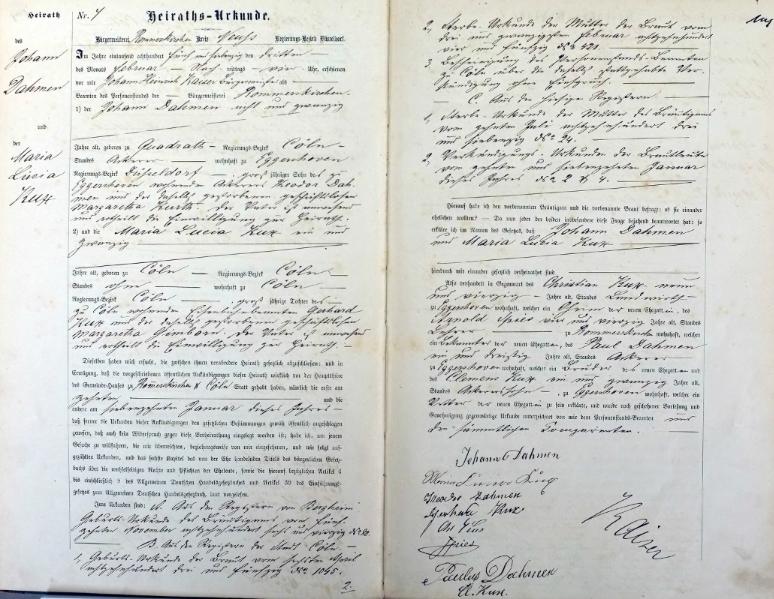 Heirath
des
Johann
Dahmen
und
der
Maria
Lucia
Kux
Nr. 4
Heiraths-Urkunde.
Bürgermeisterei Rommerskirchen Kreis Neuss Regierungs-Bezirk Düsseldorf.
Im Jahre eintausend achthundert fünf und siebenzig den dritten
des Monats Februar Nach mittags vier Uhr, erschienen
vor mir Johann Kaiser Bürgermeister
Beamten des Personenstandes der Bürgermeisterei Rommerskirchen
1) der Johann Dahmen acht und zwanzig
Jahre alt, geboren zu Quadrath Regierungs-Bezirk Cöln
Standes Ackerer wohnhaft zu Eggershoven
Regierungs-Bezirk Düsseldorf groß jähriger Sohn des zu
Eggershoven wohnenden Ackerers Theodor Dah-
men und der daselbst gestorbenen geschäftslosen
Margaretha. Der Vater ist anwesend
und ertheilt die Einwilligung zur Heirath.
2) und die Maria Lucia Kux ein und
zwanzig
Jahre alt, geboren zu Cöln Regierungs-Bezirk Cöln
Standes ohne wohnhaft zu Cöln
Regierungs-Bezirk Cöln groß jährige Tochter des
zu Cöln wohnenden Gerhard
Kux und der daselbst gestorbenen geschäftslosen
Margaretha. Der Vater anwesend
und ertheilt die Einwilligung zur Heirath
Dieselben haben mich ersucht, die zwischen ihnen verabredete Heirath gesetzlich abzuschließen; und in
Erwägung, daß die vorgeschriebenen öffentlichen Ankündigungen dieser Heirath wirklich vor der Hauptthüre
des Gemeinde-Hauses zu Rommerskirchen & Cöln Statt gehabt haben, nämlich die erste am
zehnten und die
andere am siebenzehnten Januar dieses Jahres
daß ferner die Urkunden dieser Ankündigungen den gesetzlichen Bestimmungen gemäß öffentlich angeschlagen
gewesen, daß auch kein Widerspruch gegen diese Eheverbindung eingelegt worden ist; habe ich, um jenem
Gesuche zu willfahren, die mir überreichten, beziehungsweise von mir eingesehenen, und wie folgt auf-
gezählten Urkunden, und das sechste Kapitel des von der Ehe handelnden Titels des bürgerlichen Gesetz-
buchs über die wechselseitigen Rechte und Pflichten der Eheleute, sowie die hierauf bezüglichen Artikel
des Allgemeinen Deutschen Handelsgesetzbuchs und Artikel 30 des Einführungs-
gesetzes zum Allgemeinen Deutschen Handelsgesetzbuch laut vorgelesen.
Jene Urkunden sind: A. Aus den Registern von Bergheim
Geburts-Urkunde des Bräutigams vom fünf-
zehnten November achtzehnhundert sechs und vierzig
B. Aus den Registern der Stadt Cöln
1, Geburts-Urkunde der Braut vom sechsten
achtzehnhundert drei und fünfzig No. 1045.
2,
2, Sterbe-Urkunde der Mutter der Braut vom
Februar achtzehnhundert
vier und fünfzig No. 421.
3, Bescheinigung des Personenstands-Beamten
zu Cöln über die daselbst stattgehabte Ver-
kündigung ohne Einspruch
C. Aus den hiesigen Registern
1, Sterbe-Urkunde der Mutter des Bräutigams
vom zehnten Juli achtzehnhundert drei
und siebenzig No. 24.
2, Verkündigungs-Urkunden der Brautleute
vom zehnten und siebenzehnten Januar
dieses Jahres No. 2 & 4.
Hierauf habe ich den vorbenannten Bräutigam und die vorbenannte Braut befragt: ob sie einander
ehelichen wollen? — Da nun jeder der beiden insbesondere diese Frage bejahend beantwortet hat: so
erkläre ich im Namen des Gesetzes, daß Johann Dahmen
und Maria Lucia Kux
hierdurch mit einander gesetzlich verheirathet sind.
Also verhandelt in Gegenwart des Christian Kux neun
und vierzig Jahre alt, Standes Landwirth
zu Eggershoven wohnhaft, welcher ein Oheim der neuen Ehegattin, des
Arnold Spies vier und vierzig Jahre alt, Standes
Lehrer zu Rommerskirchen wohnhaft, welcher
ein Bekannter der neuen Ehegatten, des Paul Dahmen
ein und dreißig Jahre alt, Standes Ackerer
zu Eggershoven wohnhaft, welcher ein Bruder des neuen Ehegatten und
des Clemens Kux ein und zwanzig Jahre alt,
Standes Ackerer zu Eggershoven wohnhaft, welcher ein
Vetter der neuen Ehegattin zu sein erklärte, und wurde nach geschehener Vorlesung und
Genehmigung gegenwärtige Urkunde unterzeichnet von mir dem Personenstands-Beamten und
den sämmtlichen Comparenten
Johann Dahmen
Theodor Dahmen
Gerhard Kux
Spies
Paulus Dahmen
C. Kux.
Kaiser